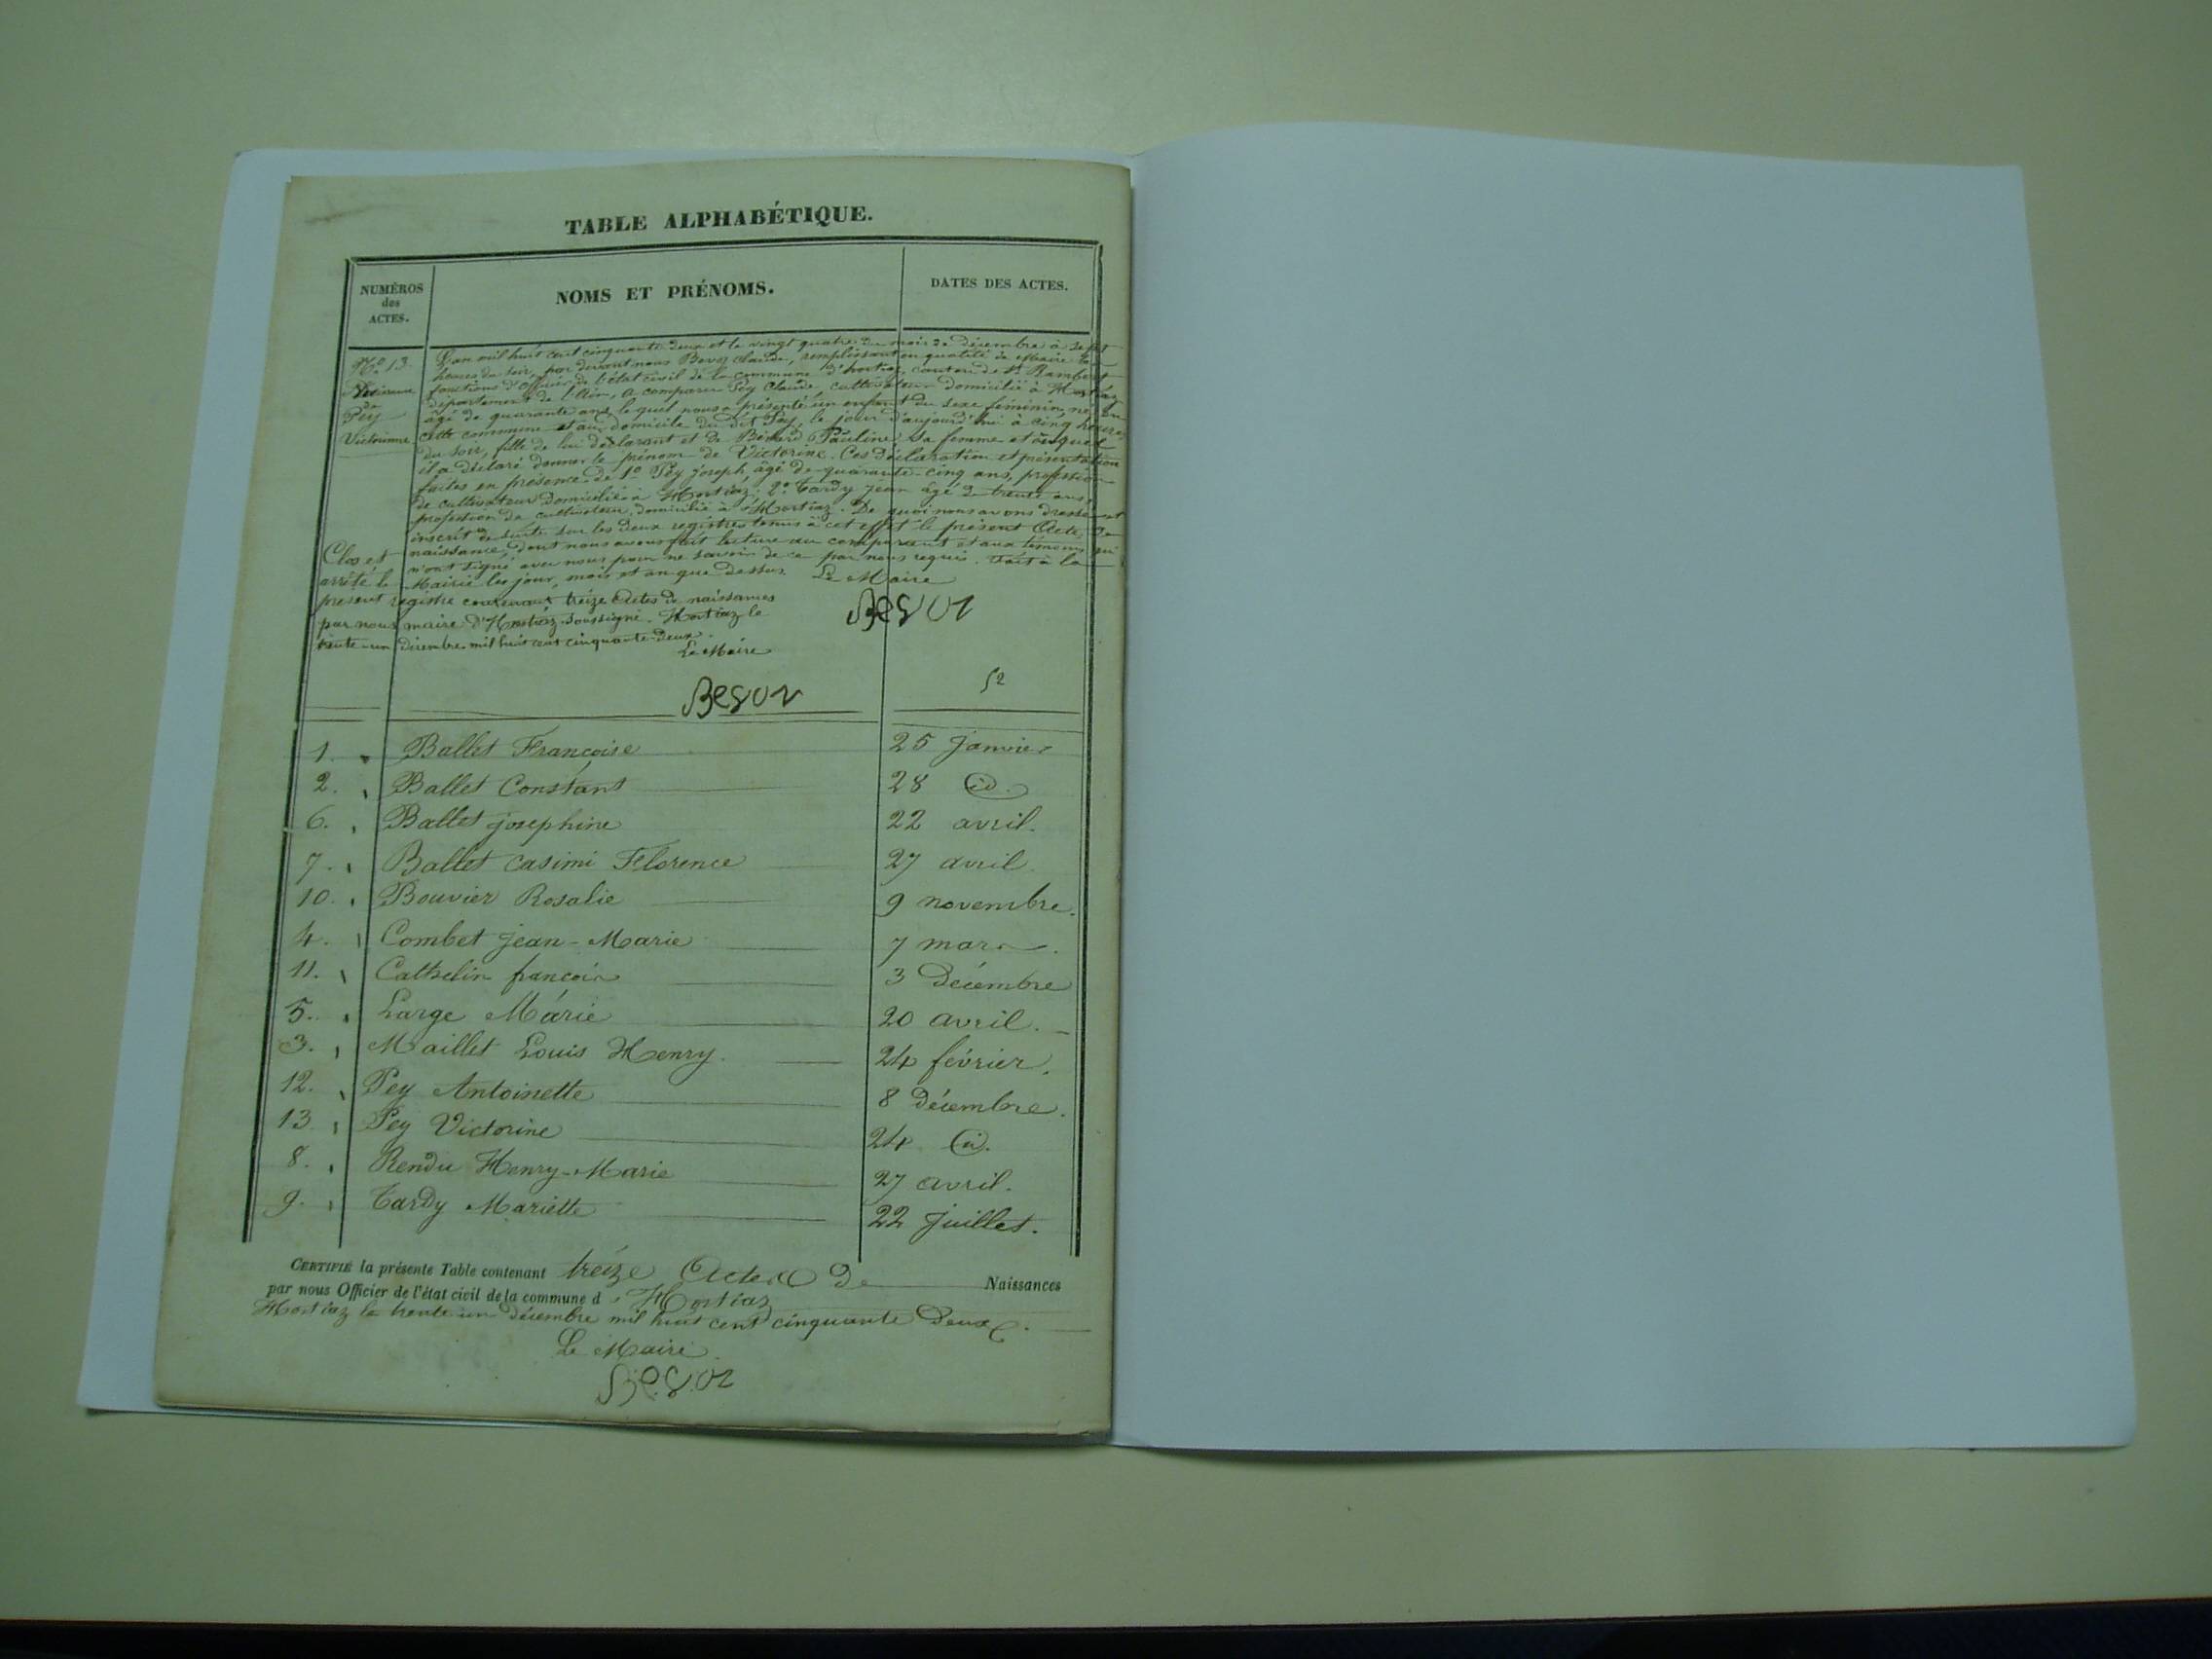 TABLE ALPHABÉTIQUE.
NUMÉROS
des
ACTES.
NOMS ET PRÉNOMS.
DATES DES ACTES.
No 13.
Naissance
de
Pey
Victorinne
L'an mil huit cent cinquante deux et le vingt quatre du mois de décembre à sept
heures du soir, par devant nous Besoz Claude, remplissant en qualité de Maire les
fonctions d'officier de l'état civil de la commune d'hortiaz, canton de St Rambert
département de l'Ain, a comparu Pey Claude, cultivateur domicilié à Hostiaz
âgé de quarante ans, lequel nous a présenté un enfant du sexe féminin, né en
cette commune et au domicile du dit Pey, le jour d'aujourd'hui à cinq heures
du soir, fille de lui déclarant et de Pauline sa femme et auquel
il a déclaré donner le prénom de Victorine. Ces déclaration et présentation
faites en présence de 1o Pey joseph, âgé de quarante-cinq ans, profession
de cultivateur domicilié à Hostiaz; 2o Tardy jean âgé de trente ans,
profession de cultivateur, domicilié à Hostiaz. De quoi nous avons dressé et
inscrit de suite sur les deux registres tenus à cet effet le présent Acte de
naissance, dont nous avons fait lecture au comparant et aux témoins qui
n'ont signé avec nous pour ne savoir de ce par nous requis. Fait à la
Mairie les jour, mois et an que dessus. Le Maire
Clos et
arrêté le
présent registre contenant treize Actes de naissances
par nous maire d'Hostiaz soussigné. Hostiaz le
trente-un décembre mil huit cent cinquante-deux.
Le Maire
52
1. Ballet Françoise 25 janvier
2. Ballet Constant 28 id.
6. Ballet josephine 22 avril.
7. Ballet Casimi Florence 27 avril.
10. Bouvier Rosalie 9 novembre.
4. Combet jean-Marie 7 mars.
11. Cathelin françois 3 Décembre
5. Large Marie 20 avril.
3. Maillet Louis Henry. 24 février.
12. Pey Antoinette 8 Décembre.
13. Pey Victorine 24 id.
8. Rendu Henry-Marie 27 avril.
9. Tardy Mariette 22 juillet.
CERTIFIÉ la présente Table contenant treize Actes De Naissances
par nous Officier de l'état civil de la commune d'Hostiaz
Hostiaz le trente-un décembre mil huit cent cinquante Deux.
Le Maire